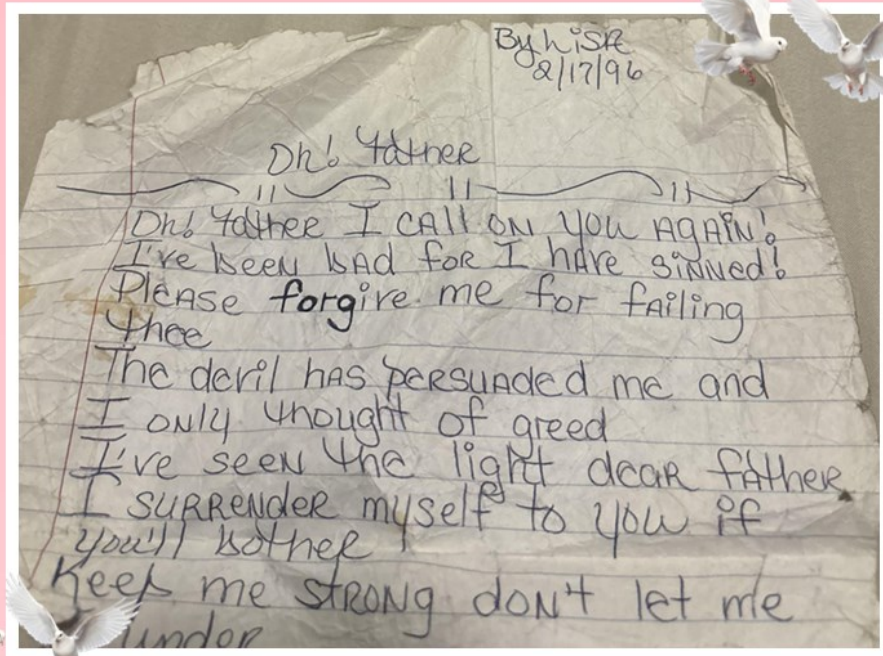 By Lisa
2/17/96
Oh! Father
Oh! Father I call on you again!
I've been bad for I have sinned!
Please forgive me for failing
thee
The devil has persuaded me and
I only thought of greed
I've seen the light dear father
I surrender myself to you if
you'll bother
Keep me strong don't let me
under